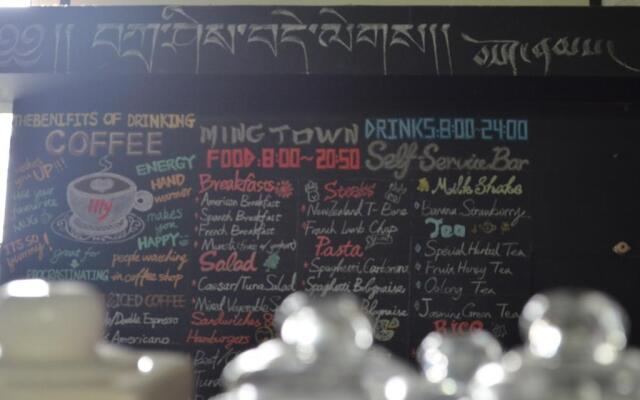 ༄༅།། བཀྲ་ཤིས་བདེ་ལེགས།།
THE BENIFITS OF DRINKING
COFFEE
makes you UP!!!
use your favourite MUG
great for
PROCRASTINATING
ENERGY
HAND warmer
makes you HAPPY
people watching in coffee shop
illy
ICED COFFEE
/Double Espresso
Americano
MINGTOWN
FOOD:8:00~20:50
Breakfasts
American Breakfast
Spanish Breakfast
French Breakfast
Salad
Caesar/Tuna Salad
Mixed Vegetable
Sandwiches
Hamburgers
Steaks
Newzealand T-Bone
French Lamb Chop
Pasta
Spaghetti Carbonara
Spaghetti Bolognaise
DRINKS:8:00-24:00
Self-Service Bar
Milk Shake
Banana Strawberry
Tea
Special Herbal Tea
Fruit Honey Tea
Oolong Tea
Jasmine Green Tea
RICE